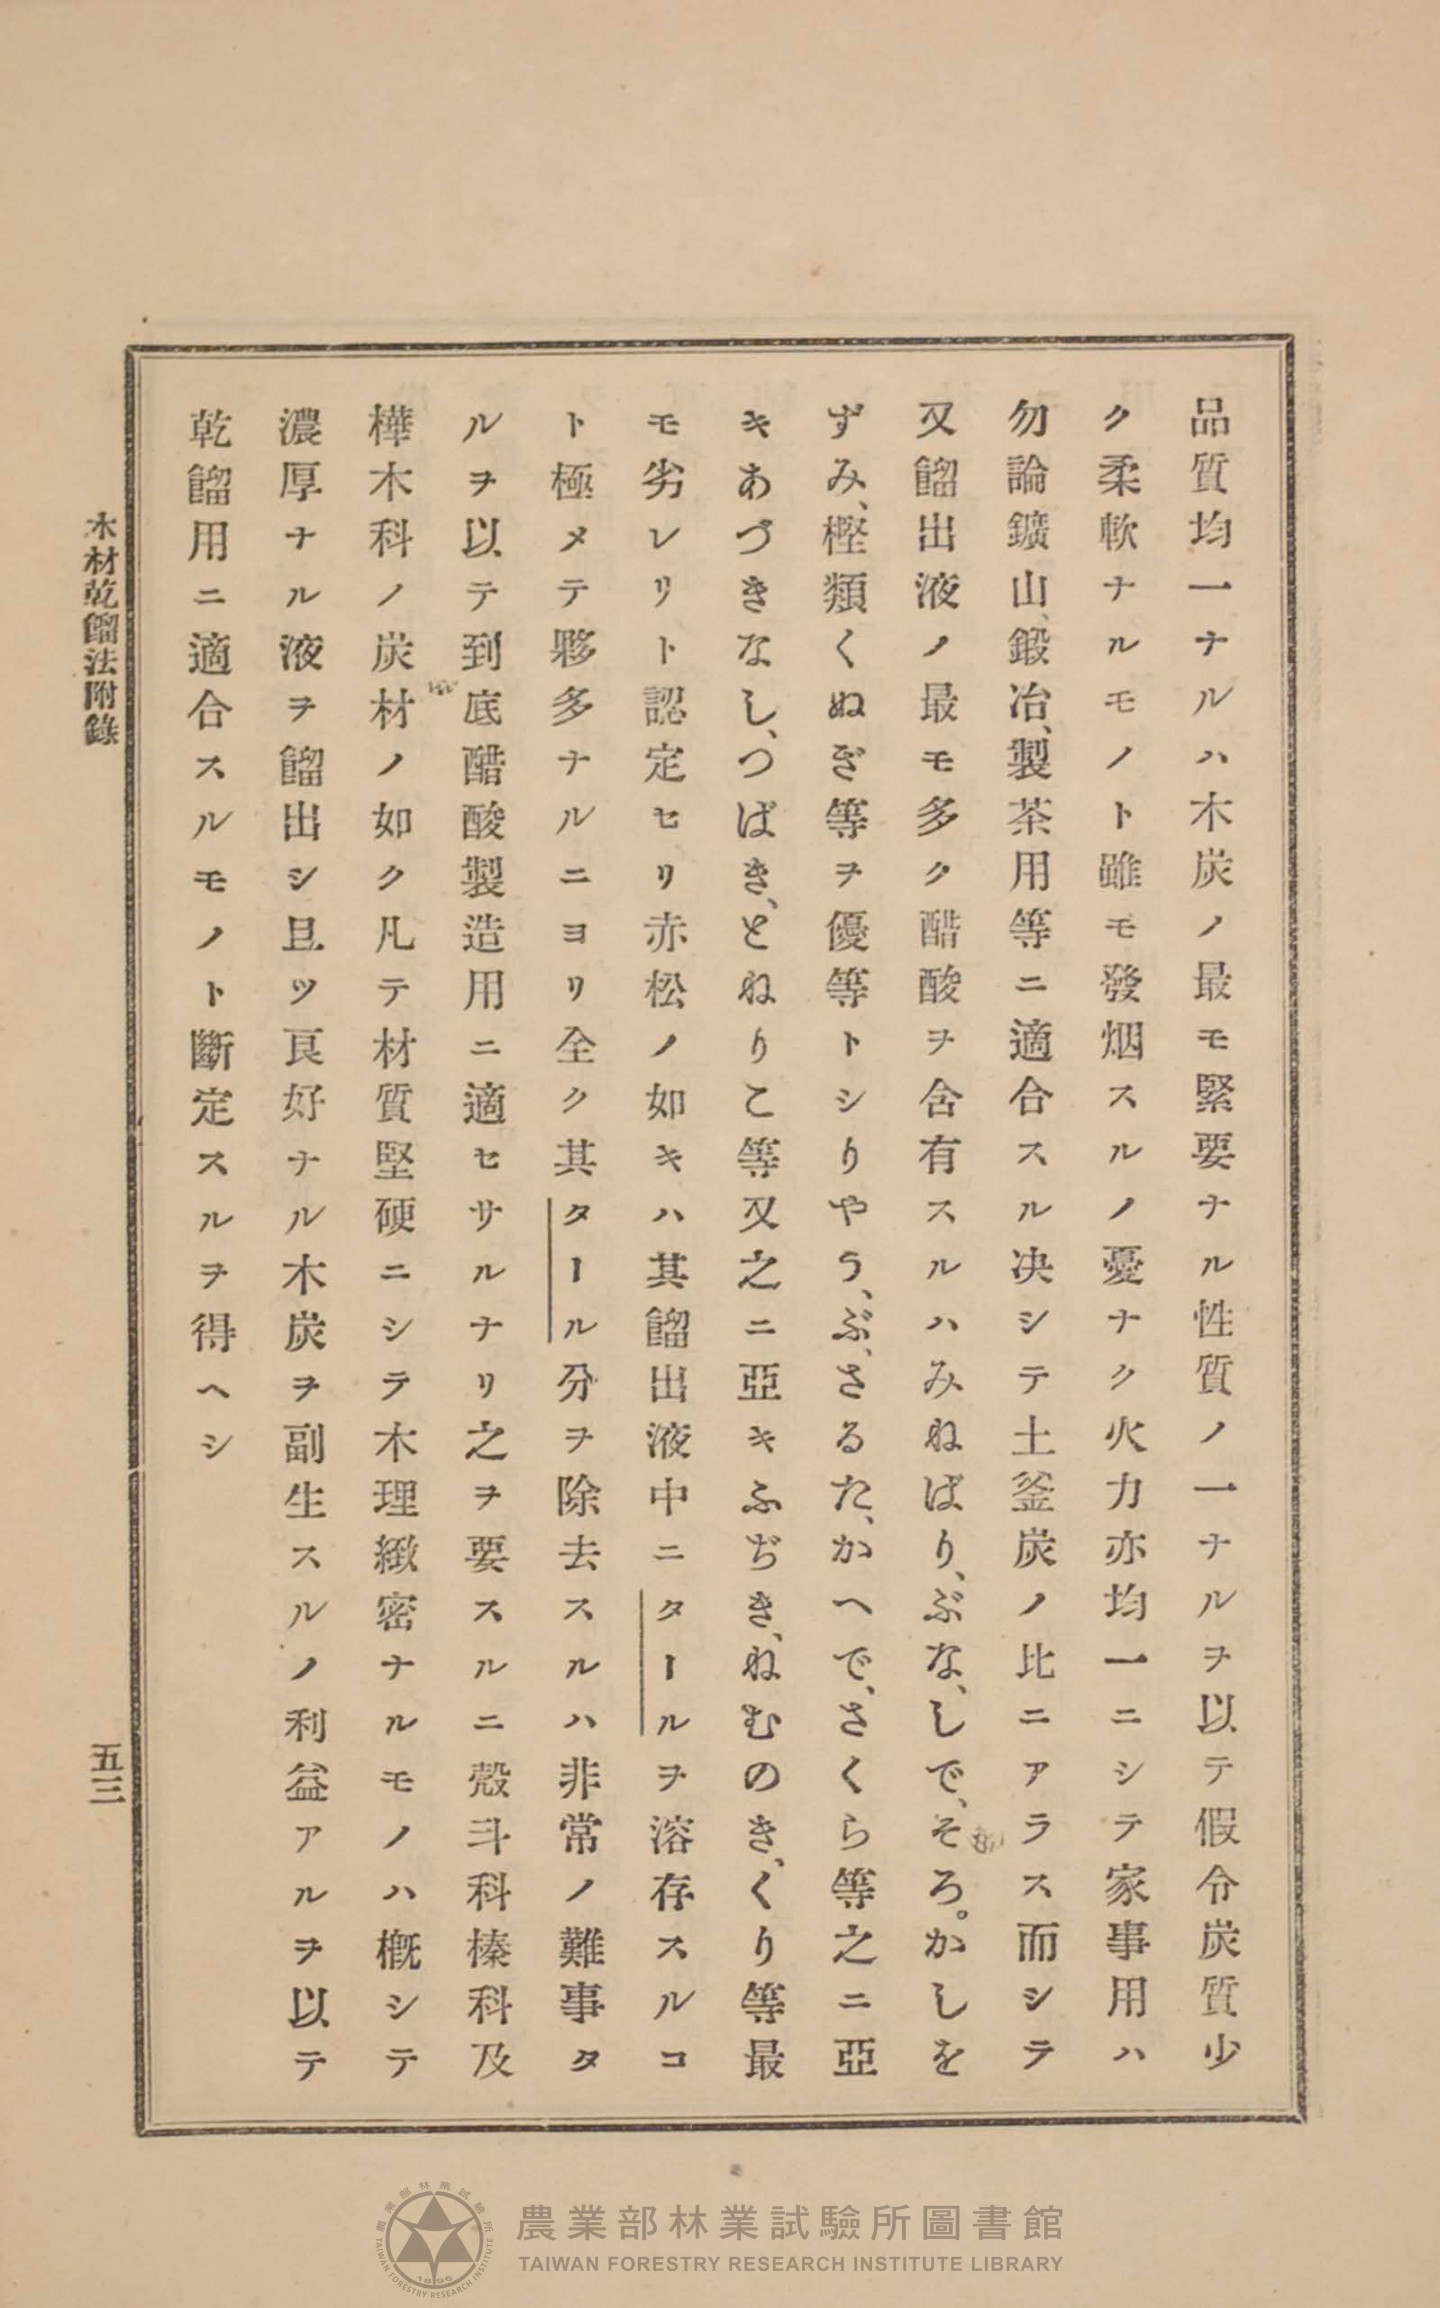 品質均一ナルハ木炭ノ最モ緊要ナル性質ノ一ナルヲ以テ假令炭質少
ク柔軟ナルモノト雖モ發烟スルノ憂ナク火力亦均一ニシテ家事用ハ
勿論鑛山、鍛冶、製茶用等ニ適合スル决シテ土釜炭ノ比ニアラス而シテ
又餾出液ノ最モ多ク醋酸ヲ含有スルハみねばり、ぶな、しで、そろ。かしを
ずみ、樫類くぬぎ等ヲ優等トシりやう、ぶ、さるた、かへで、さくら等之ニ亞
キあづきなし、つばき、とねりこ等又之ニ亞キふぢき、ねむのき、くり等最
モ劣レリト認定セリ赤松ノ如キハ其餾出液中ニタールヲ溶存スルコ
ト極メテ夥多ナルニヨリ全ク其タール分ヲ除去スルハ非常ノ難事タ
ルヲ以テ到底醋酸製造用ニ適セサルナリ之ヲ要スルニ殼斗科榛科及
樺木科ノ炭材ノ如ク凡テ材質堅硬ニシテ木理緻密ナルモノハ概シテ
濃厚ナル液ヲ餾出シ且ツ良好ナル木炭ヲ副生スルノ利益アルヲ以テ
乾餾用ニ適合スルモノト斷定スルヲ得ヘシ
木材乾餾法附錄
五三
農業部林業試驗所圖書館
TAIWAN FORESTRY RESEARCH INSTITUTE LIBRARY
農業部林業試驗所
TAIWAN FORESTRY RESEARCH INSTITUTE
1896